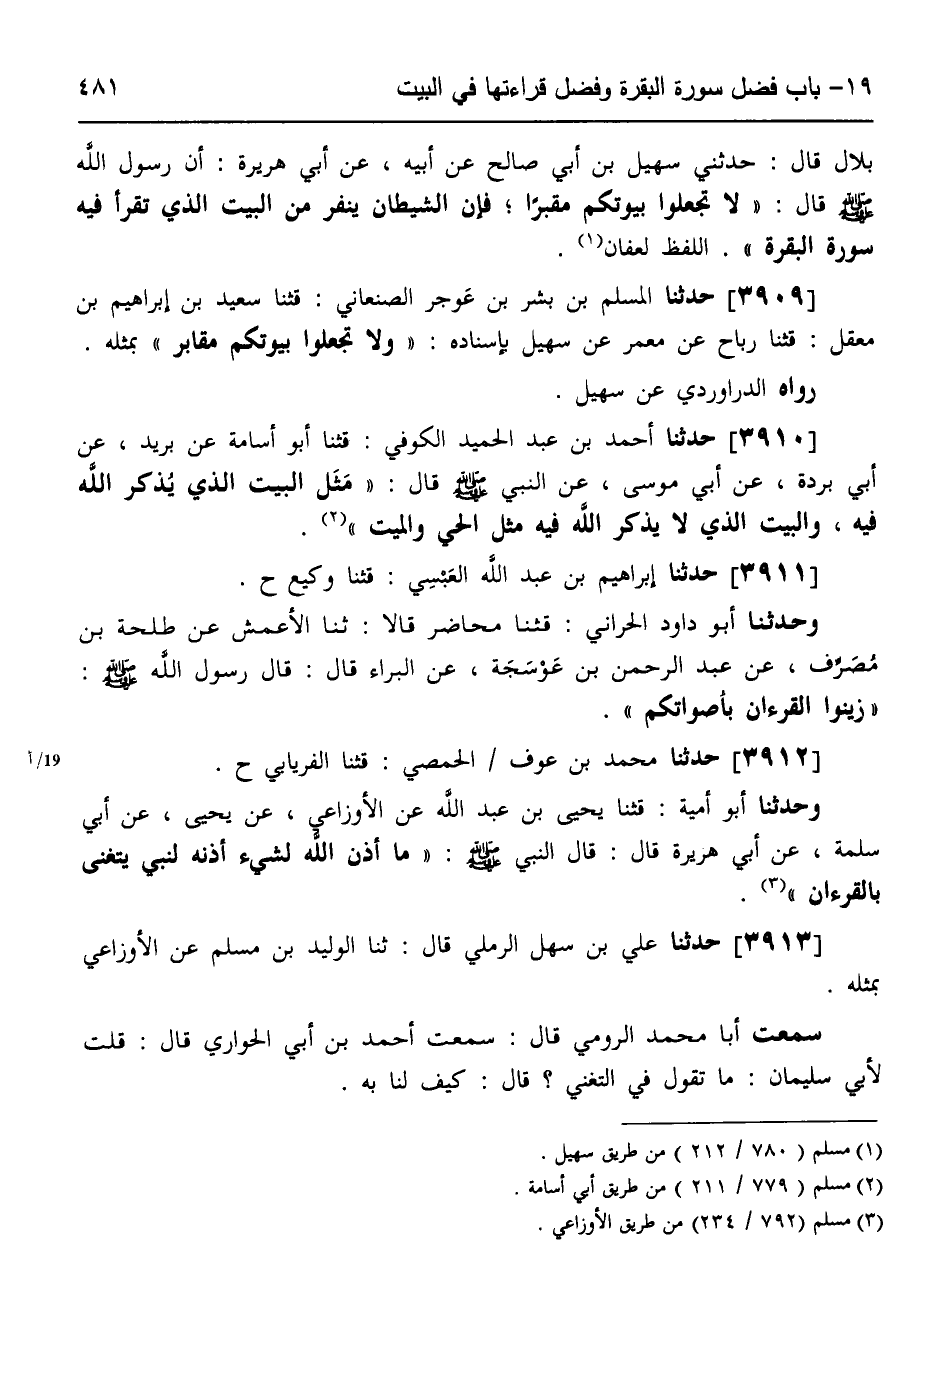 ١٩- باب فضل سورة البقرة وفضل قراءتها في البيت ٤٨١
بلال قال : حدثني سهيل بن أبي صالح عن أبيه ، عن أبي هريرة : أن رسول اللَّه
ﷺ قال : « لا تجعلوا بيوتكم مقبرًا ؛ فإن الشيطان ينفر من البيت الذي تقرأ فيه
سورة البقرة » . اللفظ لعفان(١) .
[٣٩٠٩] حدثنا المسلم بن بشر بن عَوجر الصنعاني : قثنا سعيد بن إبراهيم بن
معقل : قثنا رباح عن معمر عن سهيل بإسناده : « ولا تجعلوا بيوتكم مقابر » بمثله .
رواه الدراوردي عن سهيل .
[٣٩١٠] حدثنا أحمد بن عبد الحميد الكوفي : قثنا أبو أسامة عن بريد ، عن
أبي بردة ، عن أبي موسى ، عن النبي ﷺ قال : « مَثَل البيت الذي يُذكر اللَّه
فيه ، والبيت الذي لا يذكر اللَّه فيه مثل الحي والميت »(٢) .
[٣٩١١] حدثنا إبراهيم بن عبد اللَّه العَبْسِي : قثنا وكيع ح .
وحدثنا أبو داود الحراني : قثنا محاضر قالا : ثنا الأعمش عن طلحة بن
مُصَرِّف ، عن عبد الرحمن بن عَوْسَجَة ، عن البراء قال : قال رسول اللَّه ﷺ :
« زينوا القرءان بأصواتكم » .
[٣٩١٢] حدثنا محمد بن عوف / الحمصي : قثنا الفريابي ح . 19/أ
وحدثنا أبو أمية : قثنا يحيى بن عبد اللَّه عن الأوزاعي ، عن يحيى ، عن أبي
سلمة ، عن أبي هريرة قال : قال النبي ﷺ : « ما أذن اللَّه لشيء أذنه لنبي يتغنى
بالقرءان »(٣) .
[٣٩١٣] حدثنا علي بن سهل الرملي قال : ثنا الوليد بن مسلم عن الأوزاعي
بمثله .
سمعت أبا محمد الرومي قال : سمعت أحمد بن أبي الحواري قال : قلت
لأبي سليمان : ما تقول في التغني ؟ قال : كيف لنا به .
(١) مسلم ( ٧٨٠ / ٢١٢ ) من طريق سهيل .
(٢) مسلم ( ٧٧٩ / ٢١١ ) من طريق أبي أسامة .
(٣) مسلم (٧٩٢ / ٢٣٤) من طريق الأوزاعي .